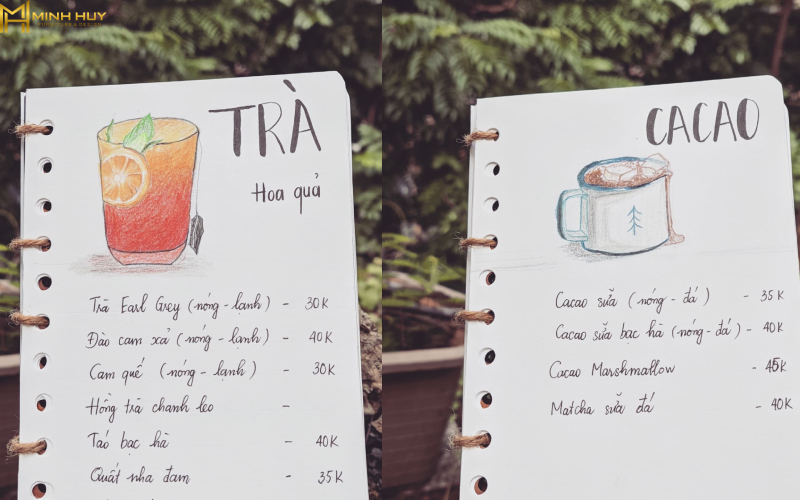 MINH HUY
TRÀ
Hoa quả
Trà Earl Grey (nóng - lạnh) - 30K
Đào cam xả (nóng - lạnh) - 40K
Cam quế (nóng - lạnh) - 30K
Hồng trà chanh leo -
Táo bạc hà - 40K
Quất nha đam - 35K
CACAO
Cacao sữa (nóng - đá) - 35K
Cacao sữa bạc hà (nóng - đá) - 40K
Cacao Marshmallow - 45K
Matcha sữa đá - 40K